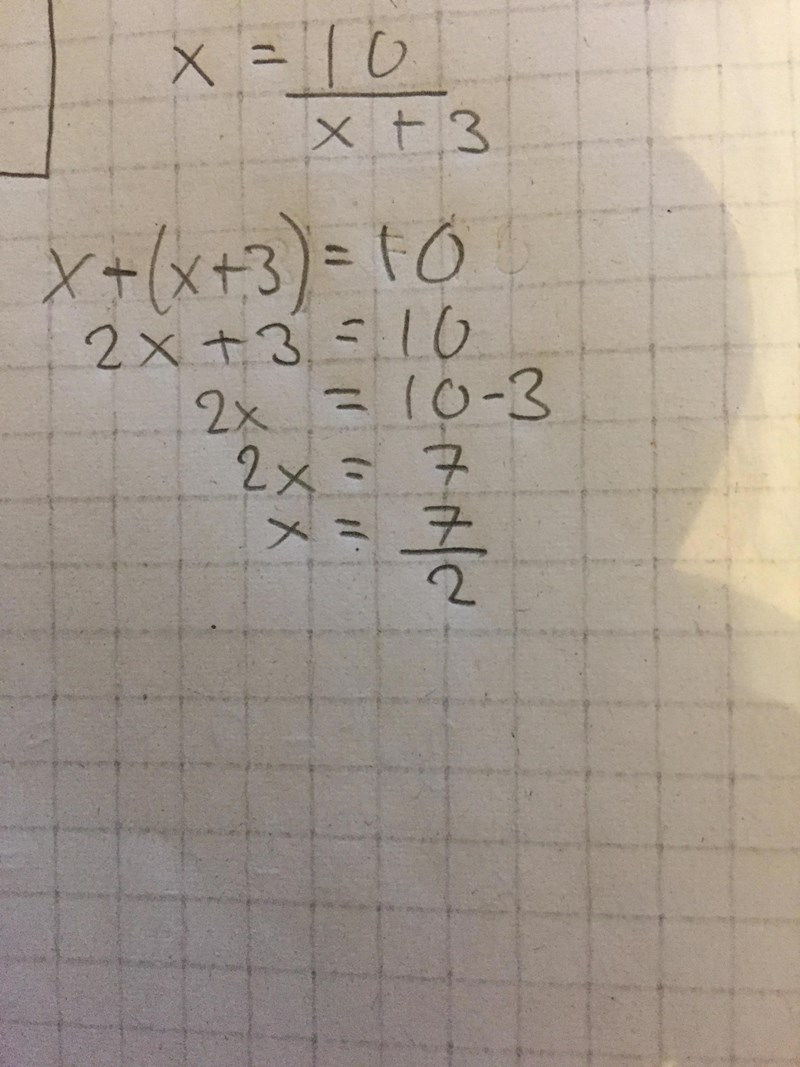 x = 10
x + 3
x+(x+3)=10
2x+3 = 10
2x = 10-3
2x = 7
x = 7
2